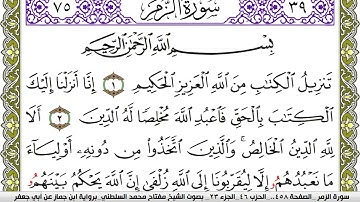 ٧٥ سُورَةُ الزُّمَرِ ٣٩
بِسْمِ اللَّهِ الرَّحْمَٰنِ الرَّحِيمِ
تَنزِيلُ الْكِتَابِ مِنَ اللَّهِ الْعَزِيزِ الْحَكِيمِ ١ إِنَّا أَنزَلْنَا إِلَيْكَ
الْكِتَابَ بِالْحَقِّ فَاعْبُدِ اللَّهَ مُخْلِصًا لَّهُ الدِّينَ ٢ أَلَا
لِلَّهِ الدِّينُ الْخَالِصُ وَالَّذِينَ اتَّخَذُوا مِن دُونِهِ أَوْلِيَاءَ
مَا نَعْبُدُهُمُ إِلَّا لِيُقَرِّبُونَا إِلَى اللَّهِ زُلْفَى إِنَّ اللَّهَ يَحْكُمُ بَيْنَهُمُ
سورة الزمر . الصفحة ٤٥٨.. الحزب ٤٦ . الجزء ٢٣.. بصوت الشيخ مفتاح محمد السلطني .برواية ابن جماز عن أبي جعفر